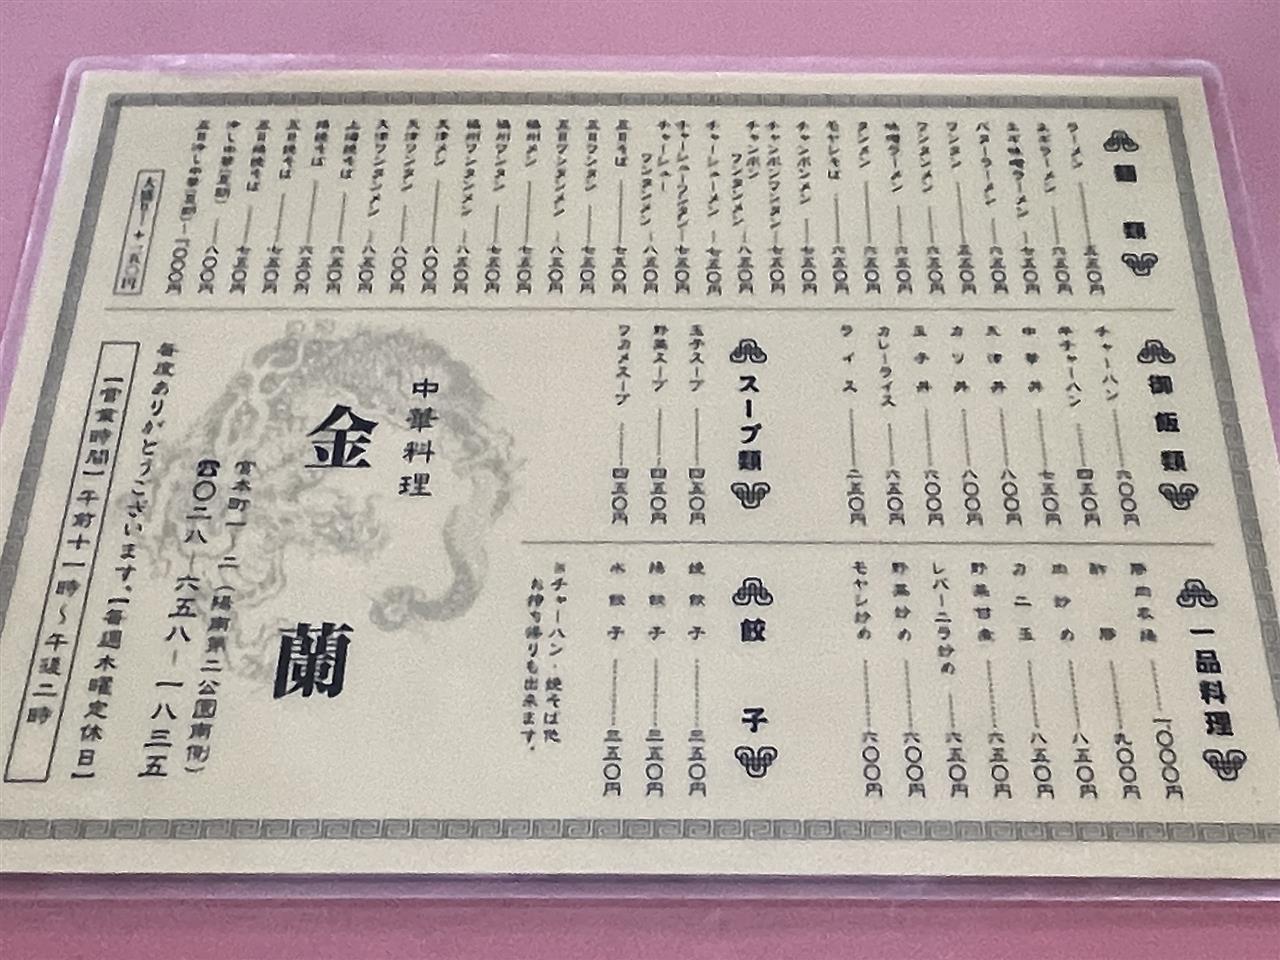 麺類
ラーメン 五五〇円
ネギラーメン 六五〇円
ネギ味噌ラーメン 七五〇円
バターラーメン 六五〇円
ワンタン 五五〇円
ワンタンメン 六五〇円
味噌ラーメン 六五〇円
タンメン 六五〇円
モヤシそば 六五〇円
チャンポンメン 七五〇円
チャンポンワンタン 七五〇円
チャンポンワンタンメン 八五〇円
チャーシューメン 七五〇円
チャーシューワンタン 七五〇円
チャーシューワンタンメン 八五〇円
五目そば 七五〇円
五目ワンタン 七五〇円
五目ワンタンメン 八五〇円
福州メン 七五〇円
福州ワンタン 七五〇円
福州ワンタンメン 八五〇円
天津メン 八〇〇円
天津ワンタン 八〇〇円
天津ワンタンメン 八五〇円
上海焼そば 六五〇円
揚焼そば 六五〇円
五目焼そば 七五〇円
五目揚焼そば 七五〇円
冷し中華(夏期) 八〇〇円
五目冷し中華(夏期) 一、〇〇〇円
大盛り 十一五〇円
御飯類
チャーハン 六〇〇円
半チャーハン 四五〇円
中華丼 七五〇円
天津丼 八〇〇円
カツ丼 八〇〇円
玉子丼 六〇〇円
カレーライス 六五〇円
ライス 二五〇円
スープ類
玉子スープ 四五〇円
野菜スープ 四五〇円
ワカメスープ 四五〇円
一品料理
豚肉衣揚 一、〇〇〇円
酢豚 九〇〇円
肉炒め 八五〇円
カニ玉 八五〇円
野菜甘煮 六五〇円
レバーニラ炒め 六五〇円
野菜炒め 六〇〇円
モヤシ炒め 六〇〇円
餃子
焼餃子 三五〇円
揚餃子 三五〇円
水餃子 三五〇円
※チャーハン・焼そば他
お持ち帰りも出来ます。
中華料理
金蘭
宮本町一ー二(陽南第二公園南側)
☎〇二八ー六五八ー一八三五
毎度ありがとうございます。【毎週木曜定休日】
【営業時間】午前十一時～午後二時